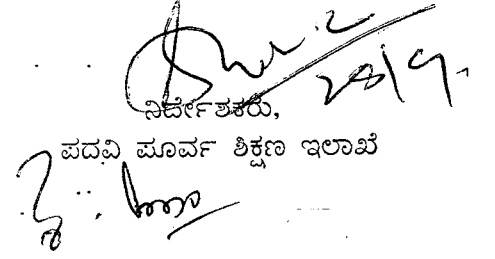 28/9.
ನಿರ್ದೇಶಕರು,
ಪದವಿ ಪೂರ್ವ ಶಿಕ್ಷಣ ಇಲಾಖೆ